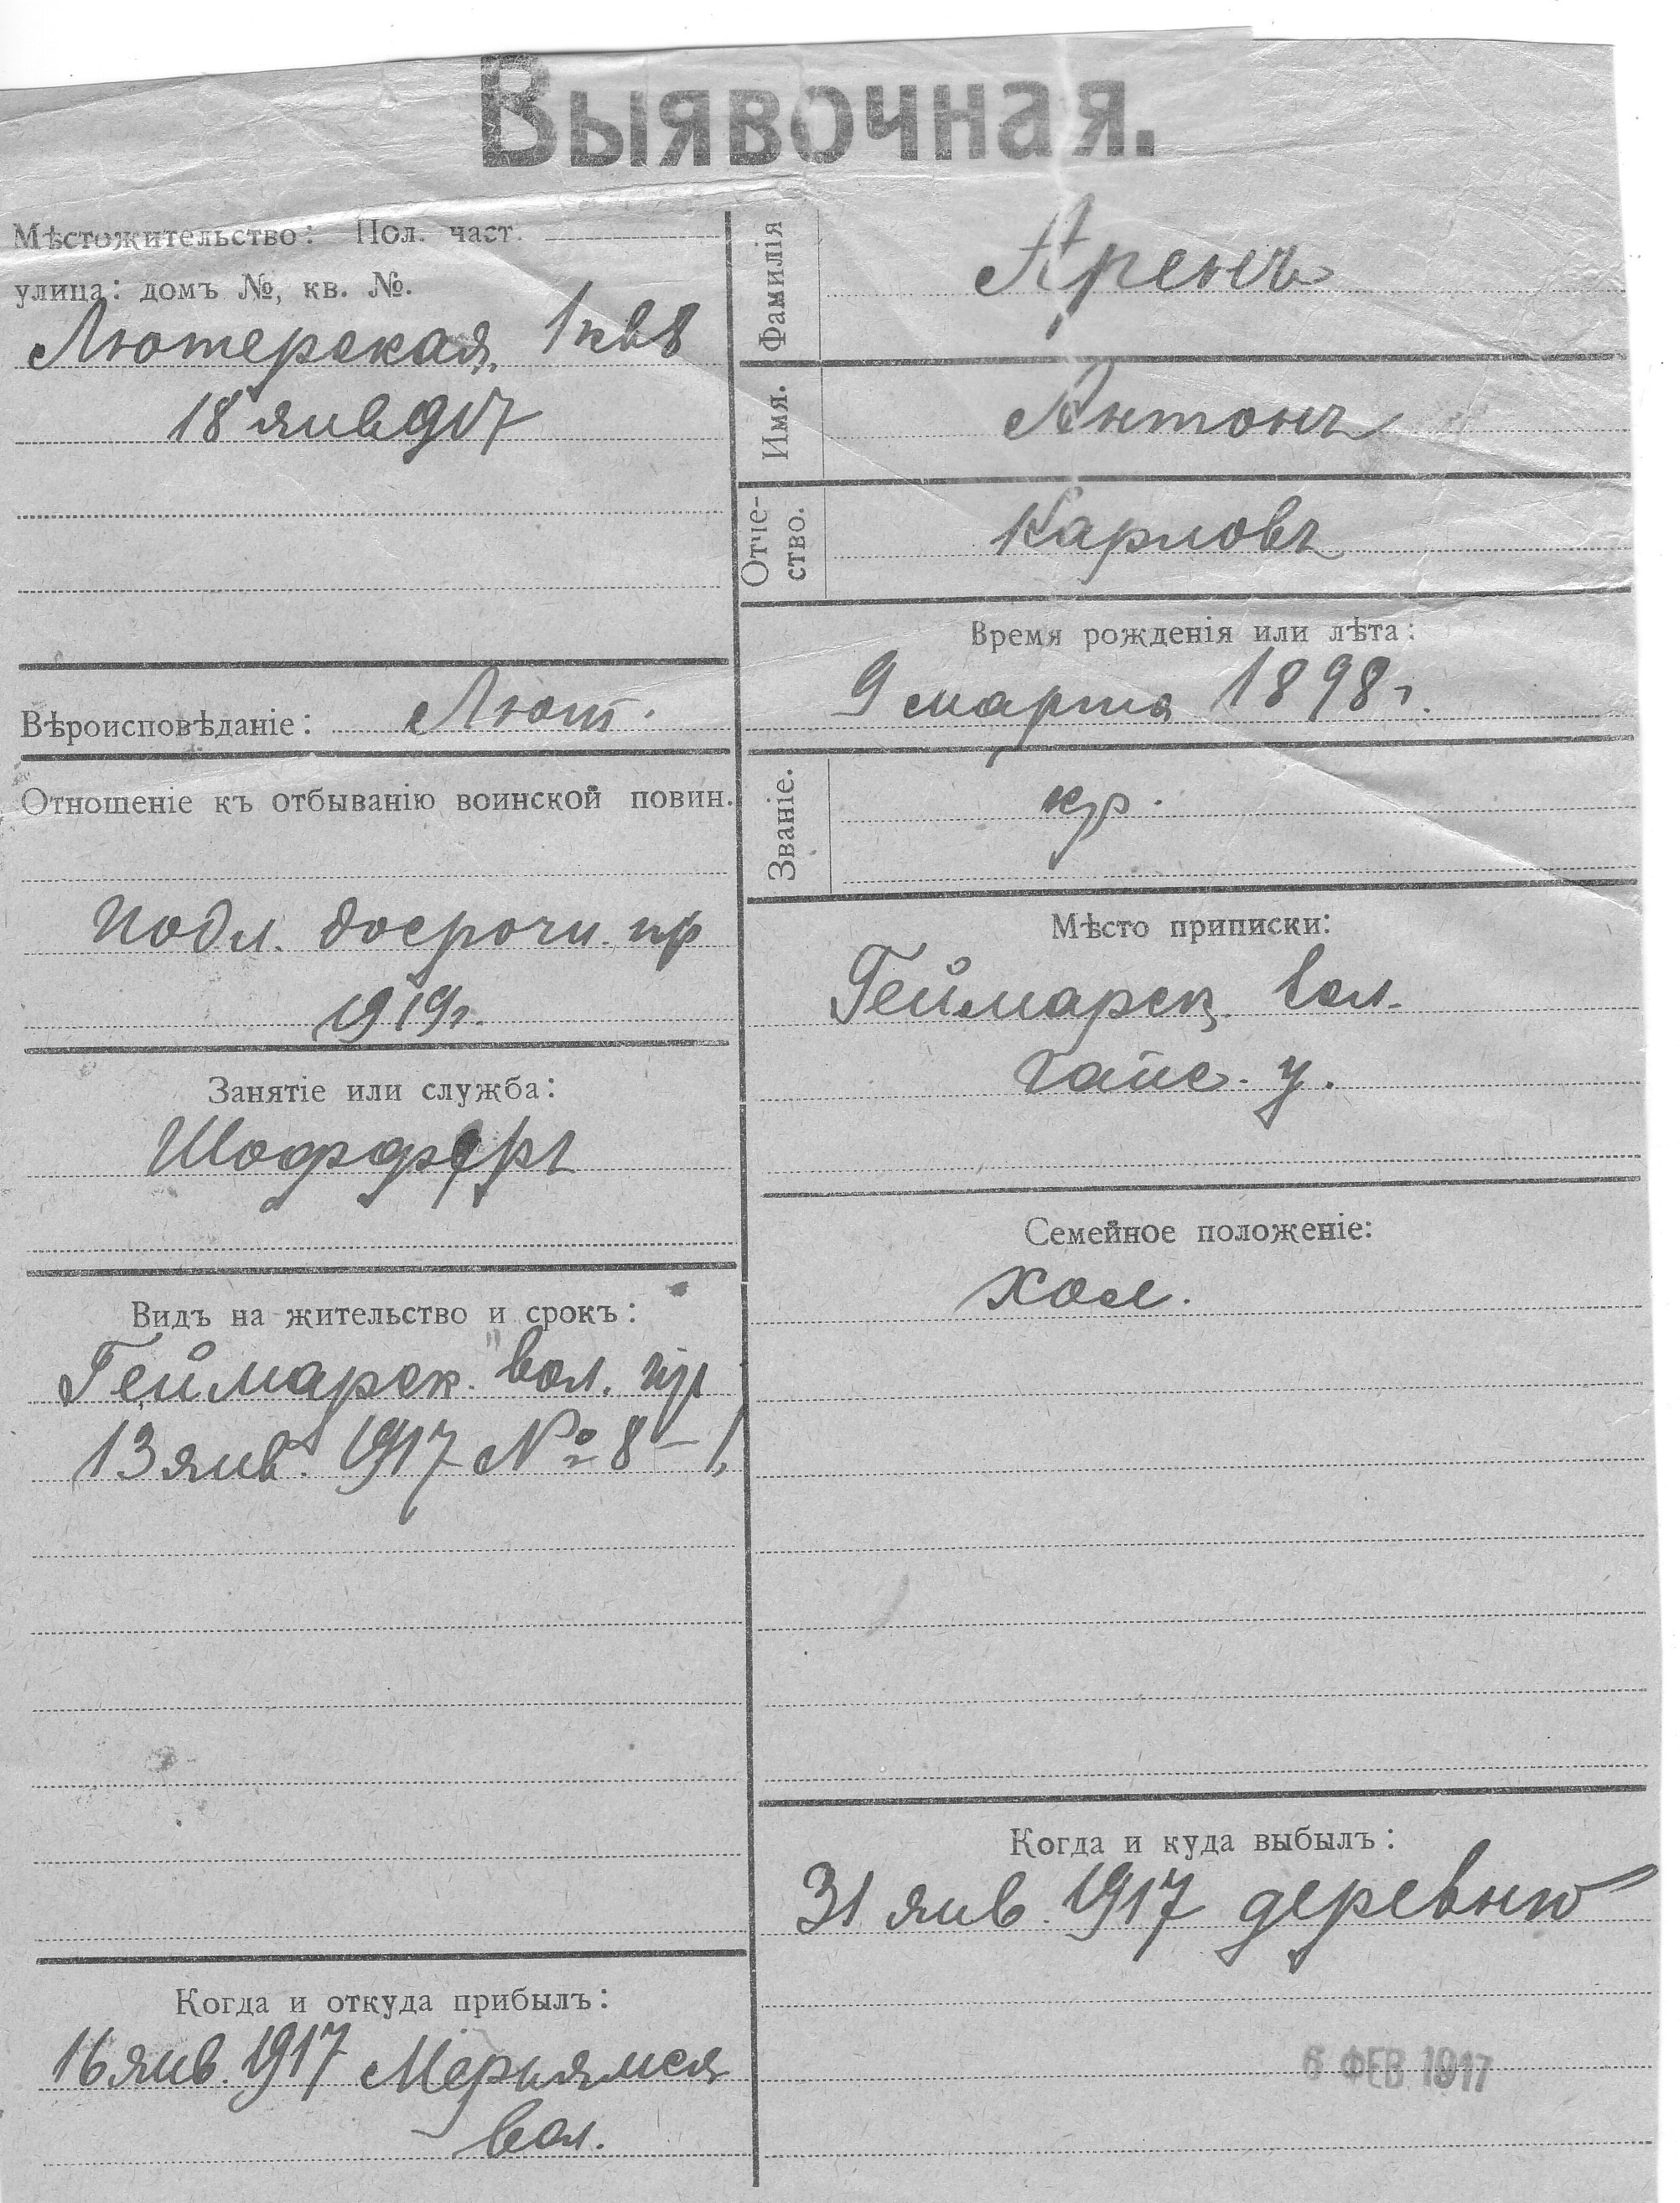 Выявочная.
Мѣстожительство: Пол. част.
улица: домъ №, кв. №.
Лютерская, 1 кв 8
18 янв 917
Вѣроисповѣданіе: Лют.
Отношеніе къ отбыванію воинской повин.
Подл. досрочн. пр
1919г.
Занятіе или служба:
Шофферъ
Видъ на жительство и срокъ:
Геймарск. вол. пр
13 янв. 1917 № 8 – 1
Когда и откуда прибылъ:
16 янв. 1917
вол.
Фамилія
Аренъ
Имя.
Антонъ
Отче-
ство.
Карловъ
Время рожденія или лѣта:
9 марта 1898 г.
Званіе.
кр.
Мѣсто приписки:
Геймарск. вол.
Гапс. у.
Семейное положеніе:
хол.
Когда и куда выбылъ:
31 янв. 1917 деревню
6 ФЕВ 1917